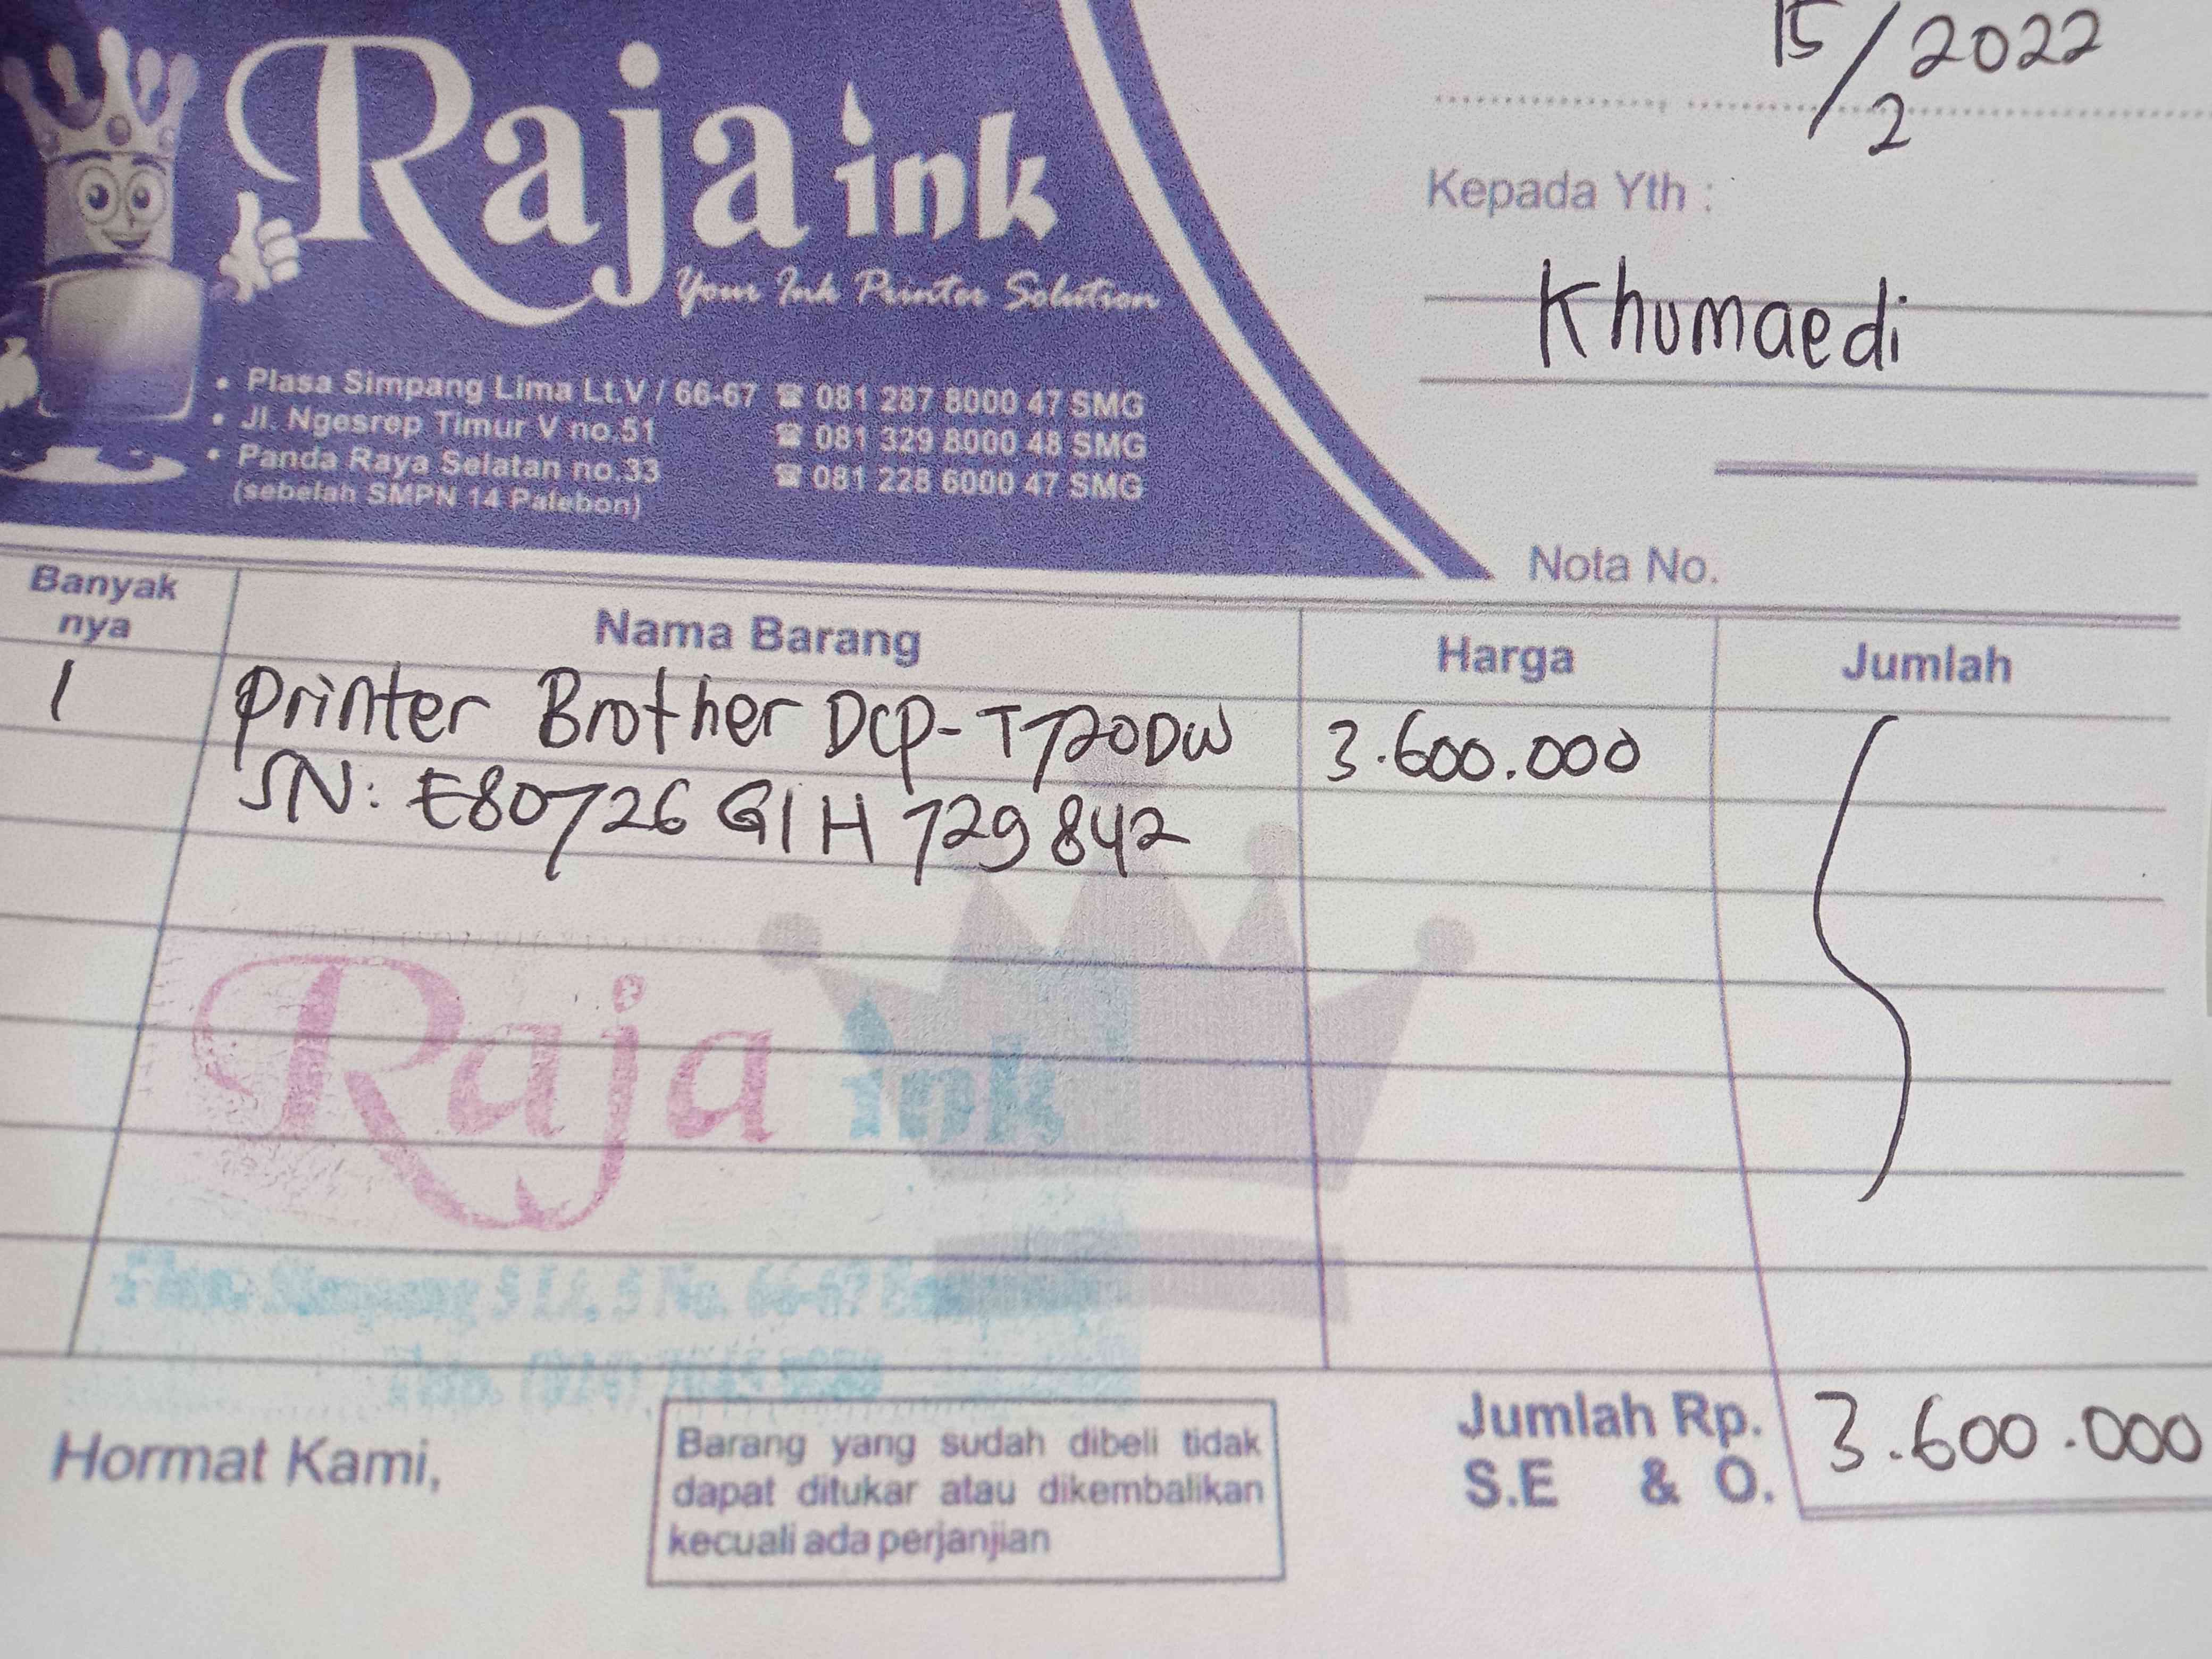 15/2 2022
Raja ink
Your Ink Printer Solution
• Plasa Simpang Lima Lt.V / 66-67 ☎ 081 287 8000 47 SMG
• Jl. Ngesrep Timur V no.51 ☎ 081 329 8000 48 SMG
• Panda Raya Selatan no.33 ☎ 081 228 6000 47 SMG
(sebelah SMPN 14 Palebon)
Kepada Yth :
Khumaedi
Nota No.
Banyak nya Nama Barang Harga Jumlah
1 Printer Brother DCP-T720DW 3.600.000
SN: E80726G1H729842
Raja ink
Simpang 5 Lt. 5 No. 66-67
Hormat Kami,
Barang yang sudah dibeli tidak
dapat ditukar atau dikembalikan
kecuali ada perjanjian
Jumlah Rp. 3.600.000
S.E & O.